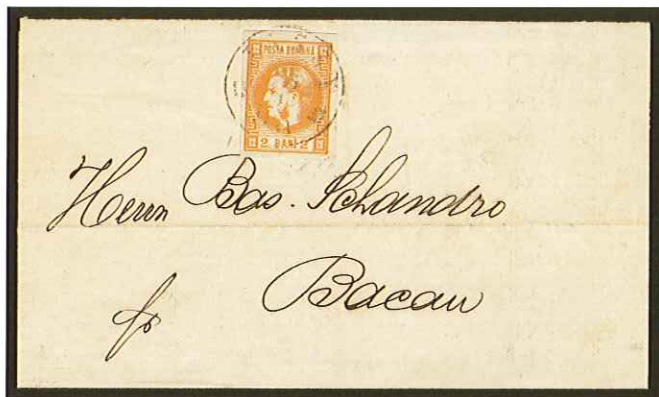 POSTA ROMANA
2 BANI 2
Herrn Bas. Schandro
Bacau
fr